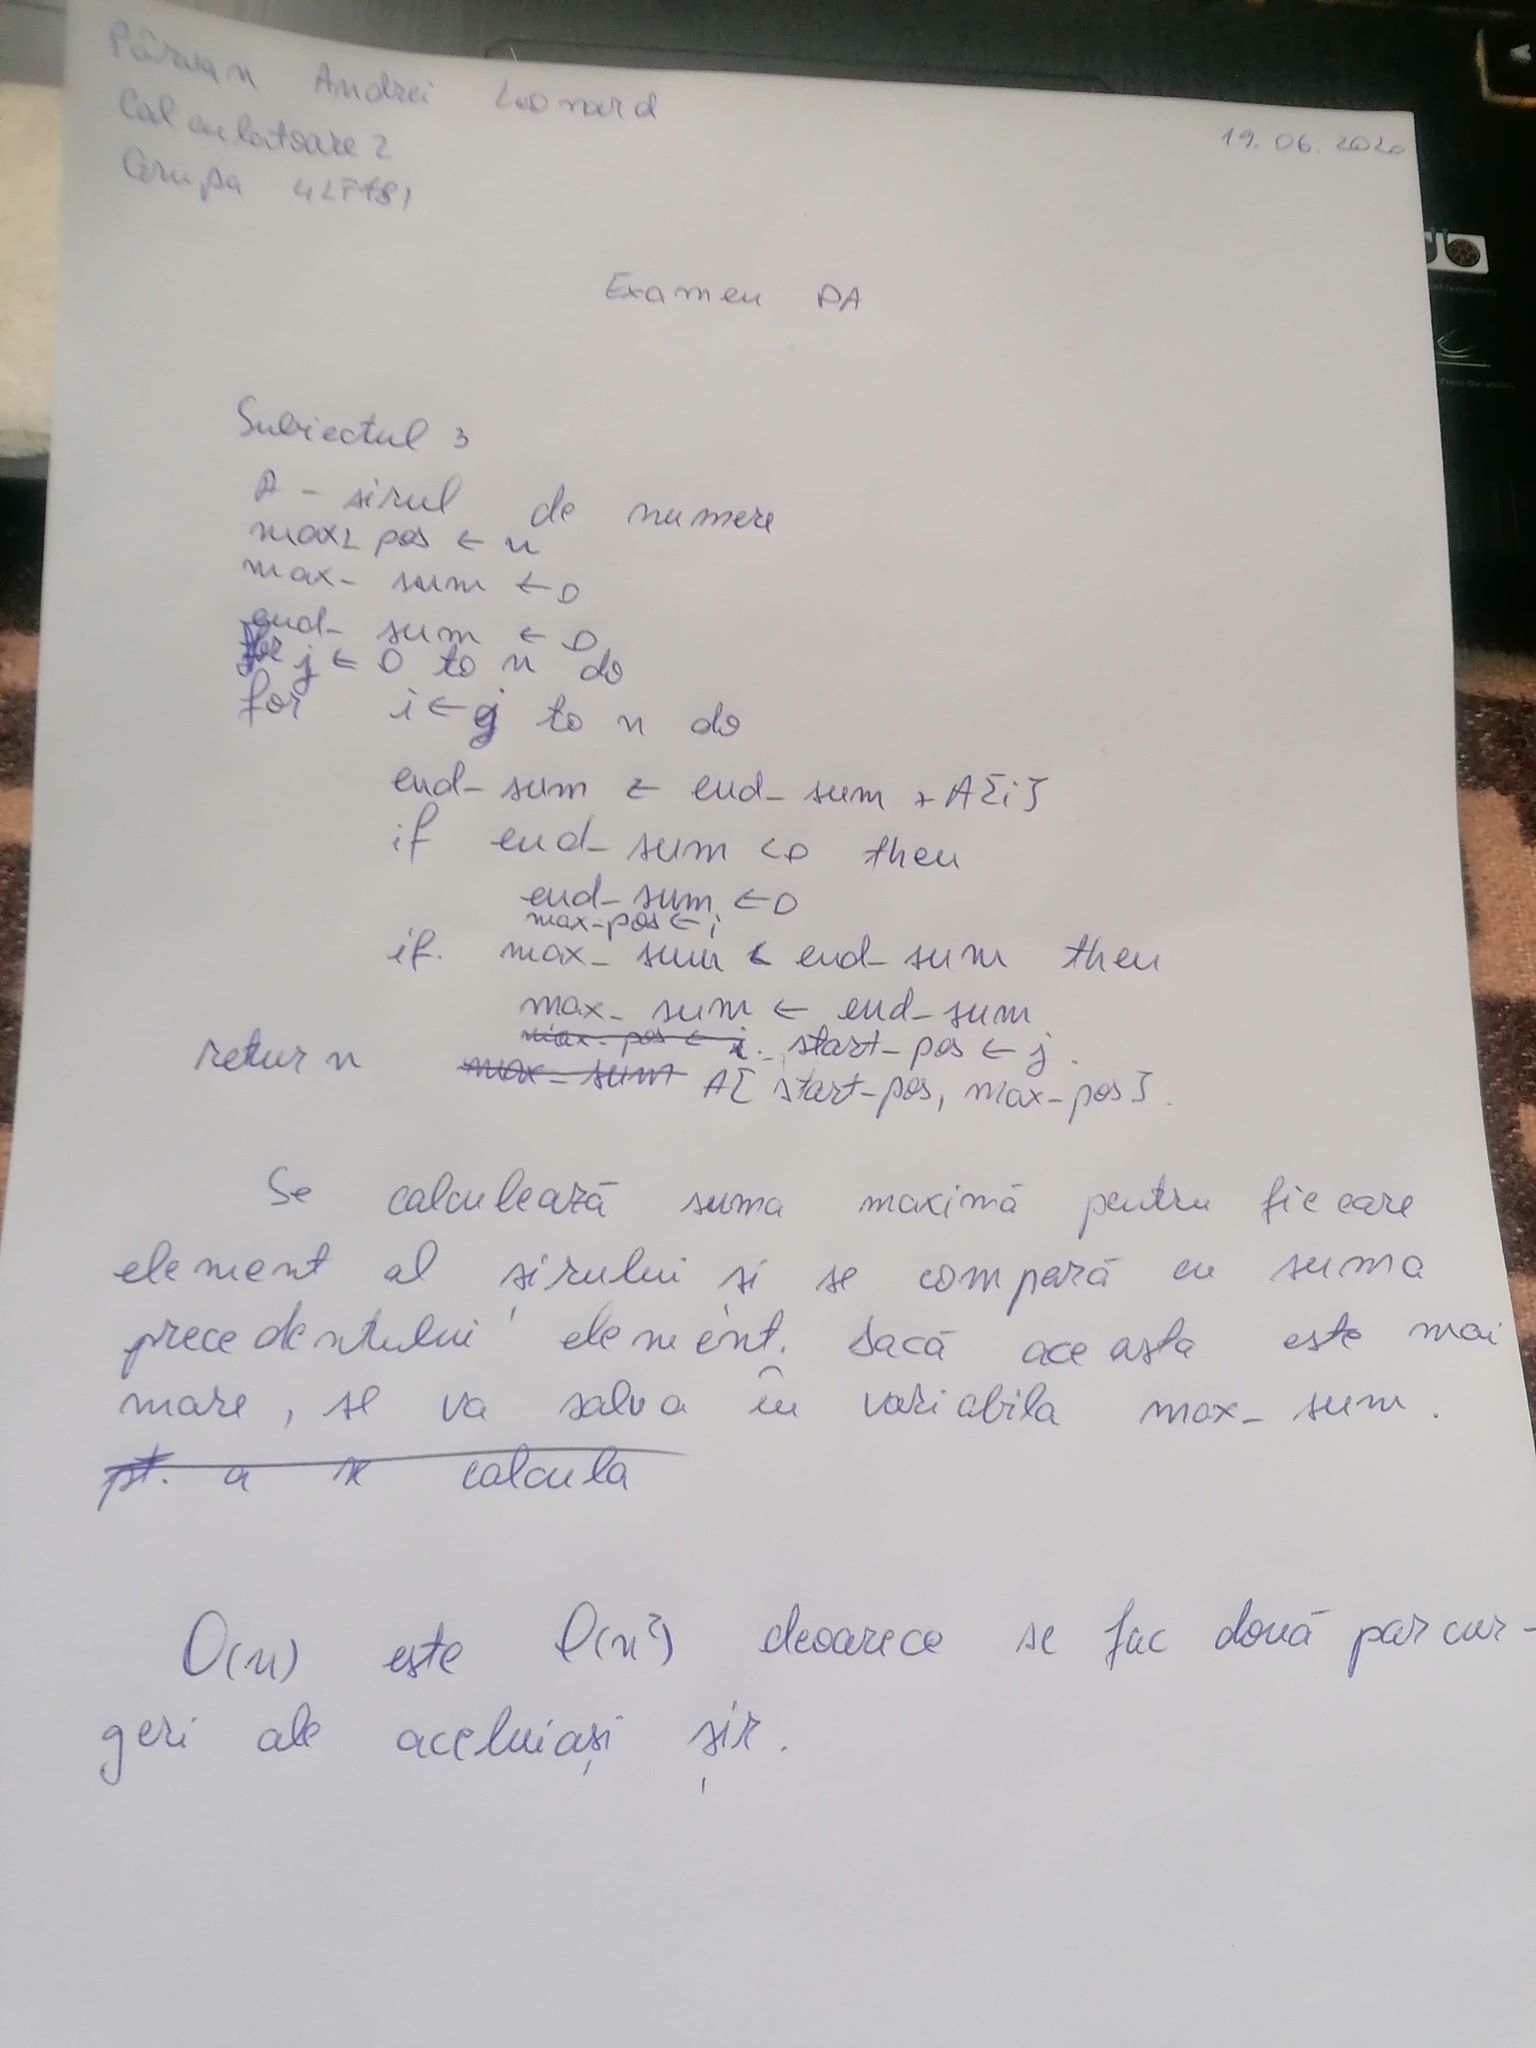 Pârvan Andrei Leonard
Calculatoare 2
19.06.2020
Grupa
Examen PA
Subiectul 3
A - sirul de numere
max_pos ← n
max_sum ← 0
end_sum ← 0
for j ← 0 to n do
for i ← j to n do
end_sum ← end_sum + A[i]
if end_sum < 0 then
end_sum ← 0
max_pos ← i
if max_sum < end_sum then
max_sum ← end_sum
max_pos ← i. start_pos ← j.
return max_sum A[start_pos, max_pos].
Se calculează suma maximă pentru fiecare
element al șirului și se compară cu suma
precedentului element. Dacă aceasta este mai
mare, se va salva în variabila max_sum.
pt. a se calcula
O(n) este O(n²) deoarece se fac două parcur-
geri ale aceluiași șir.